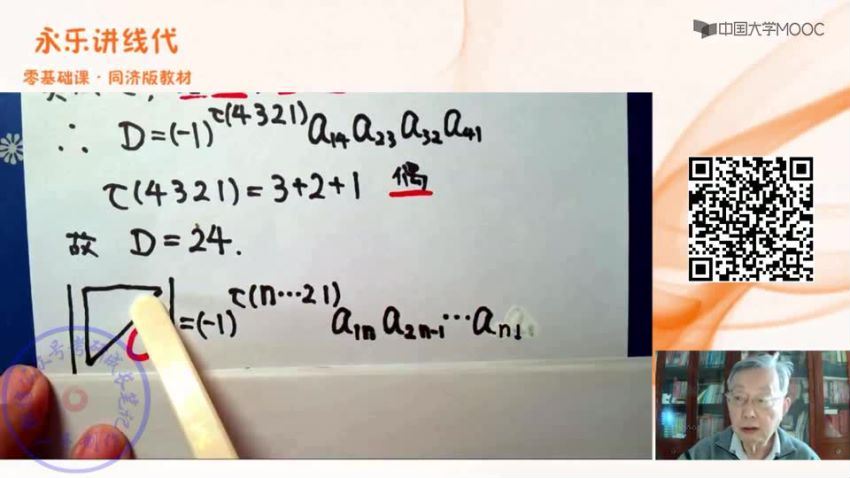 永乐讲线代
零基础课·同济版教材
中国大学MOOC
∴ D=(-1)^τ(4321) a₁₄a₂₃a₃₂a₄₁
τ(4321)=3+2+1 偶
故 D=24.
=(-1)^τ(n⋯21) a₁ₙ a₂ₙ₋₁⋯aₙ₁